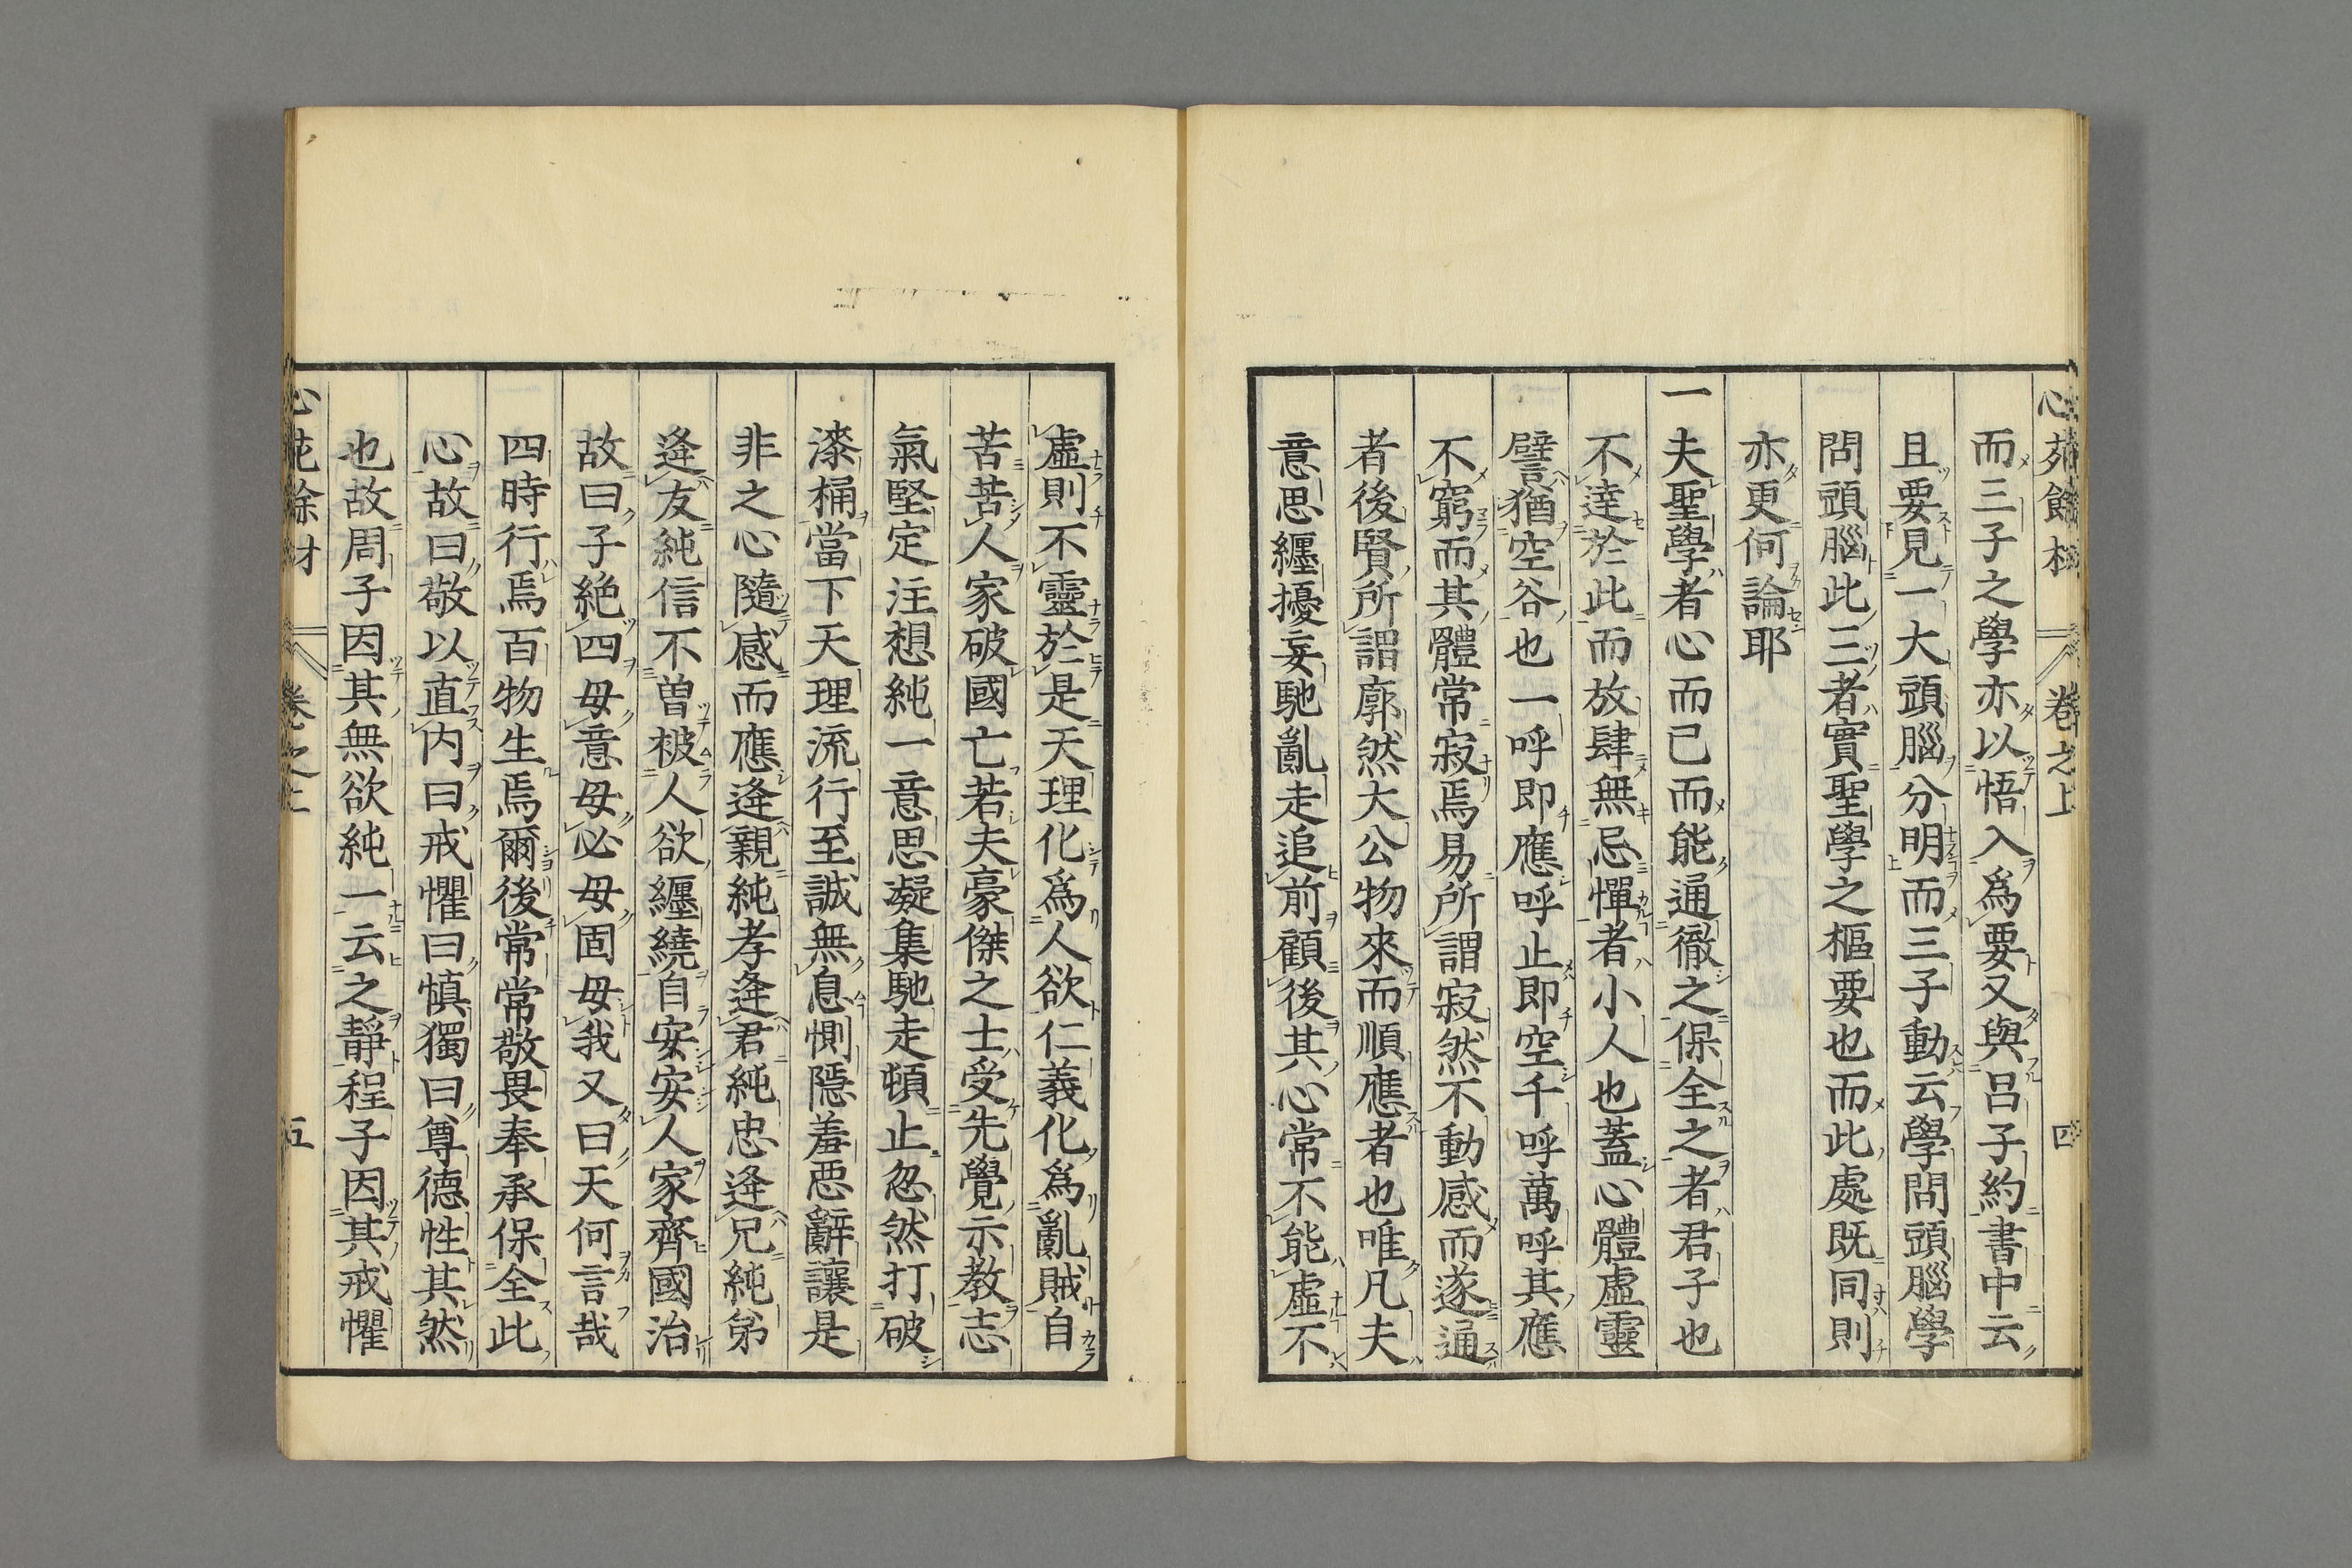 心苑餘材 卷之上 四
而三子之學亦以悟入爲要又與呂子約書中云
且要見一大頭腦分明而三子動云學問頭腦學
問頭腦此三者實聖學之樞要也而此處既同則
亦更何論耶
一夫聖學者心而已而能通徹之保全之者君子也
不達於此而放肆無忌憚者小人也蓋心體虛靈
譬猶空谷也一呼即應呼止即空千呼萬呼其應
不窮而其體常寂焉易所謂寂然不動感而遂通
者後賢所謂廓然大公物來而順應者也唯凡夫
意思纏擾妄馳亂走追前顧後其心常不能虛不
虛則不靈於是天理化爲人欲仁義化爲亂賊自
苦苦人家破國亡若夫豪傑之士受先覺示教志
氣堅定注想純一意思凝集馳走頓止忽然打破
漆桶當下天理流行至誠無息惻隱羞惡辭讓是
非之心隨感而應逢親純孝逢君純忠逢兄純弟
逢友純信不曾被人欲纏繞自安安人家齊國治
故曰子絶四毋意毋必毋固毋我又曰天何言哉
四時行焉百物生焉爾後常常敬畏奉承保全此
心故曰敬以直内曰戒懼曰愼獨曰尊德性其然
也故周子因其無欲純一云之靜程子因其戒懼
心苑餘材 卷之上 五